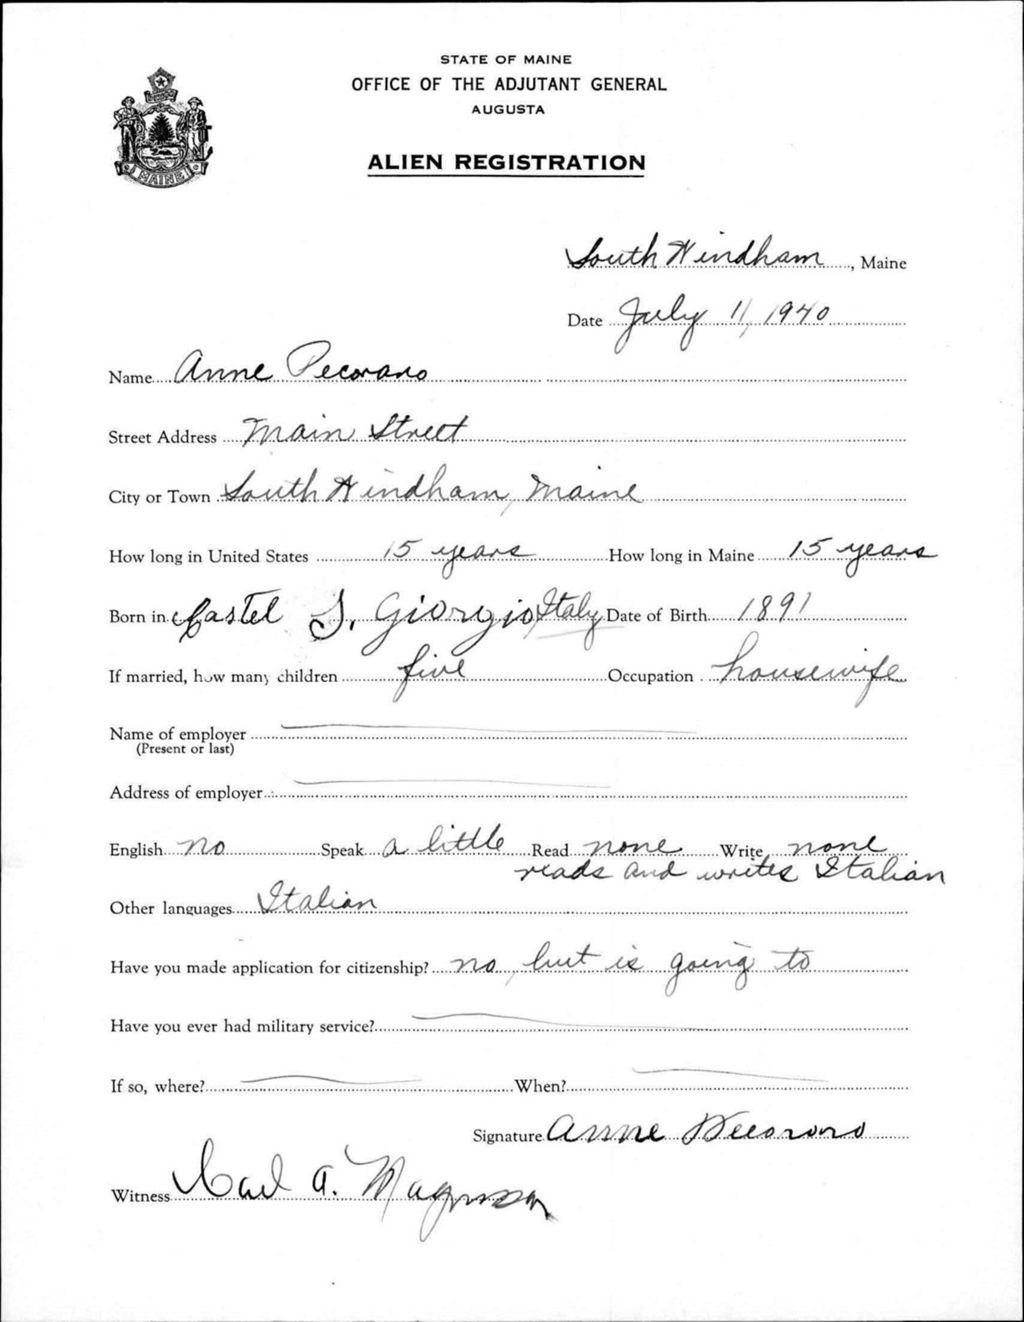 STATE OF MAINE
OFFICE OF THE ADJUTANT GENERAL
AUGUSTA
ALIEN REGISTRATION
MAINE
South Windham, Maine
Date July 11, 1940
Name Anne Pecoraro
Street Address Main Street
City or Town South Windham, Maine
How long in United States 15 years How long in Maine 15 years
Born in Castel S. Giorgio, Italy Date of Birth 1891
If married, how many children five Occupation housewife
Name of employer
(Present or last)
Address of employer
English no Speak a little Read none Write none
reads and writes Italian
Other languages Italian
Have you made application for citizenship? no, but is going to
Have you ever had military service?
If so, where? When?
Signature Anne Pecoraro
Witness Carl A. Magnuson